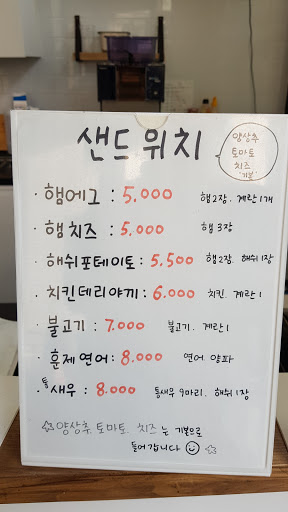 샌드위치
양상추
토마토
치즈
"기본"
· 햄에그 : 5.000 햄2장. 계란1개
· 햄치즈 : 5.000 햄3장
· 해쉬포테이토 : 5.500 햄2장. 해쉬1장
· 치킨데리야끼 : 6.000 치킨. 계란1
· 불고기 : 7.000 불고기. 계란1
· 훈제연어 : 8.000 연어. 양파
· 통새우 : 8.000 통새우 9마리. 해쉬1장
☆양상추. 토마토. 치즈는 기본으로
들어갑니다 ☺ ☆